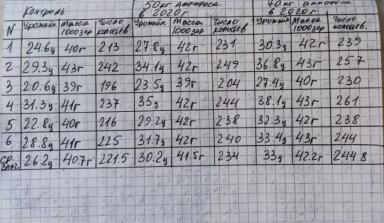 Контроль 50кг аммофоса в 2020г 70кг аммофоса в 2020г
N Урожайн. Масса 1000зер Число колосьев Урожайн. Масса 1000зер. Число колосьев Урожайн. Масса 1000зер. Число колосьев.
1 24.6ц 40г 213 27.8ц 42г 231 30.3ц 42г 239
2 29.3ц 43г 242 34.1ц 42г 249 36.8ц 43г 257
3 20.6ц 39г 196 23.5ц 39г 204 27.4ц 40г 230
4 31.3ц 41г 237 35ц 42г 244 38.1ц 43г 261
5 22.8ц 40г 216 29.2ц 42г 238 32.3ц 42г 238
6 28.8ц 41г 225 31.7ц 42г 240 33.4ц 43г 244
ср. знач. 26.2ц 40.7г 221.5 30.2ц 41.5г 234 33ц 42.2г 244.8